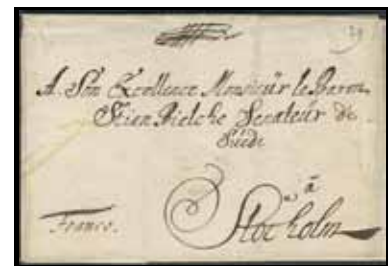 A Son Excellence Monsieur le Baron
Sten Bielche Senateur de
Suéde
à
Stockholm
Franco.